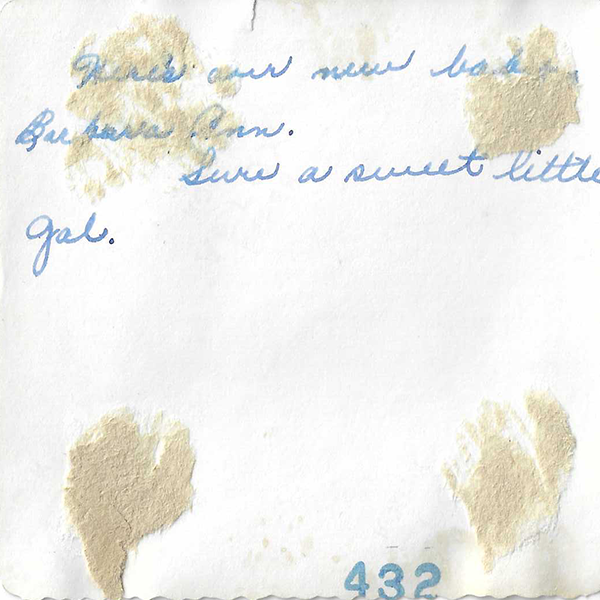 Here's our new baby,
Barbara Ann.
Sure a sweet little
gal.
432